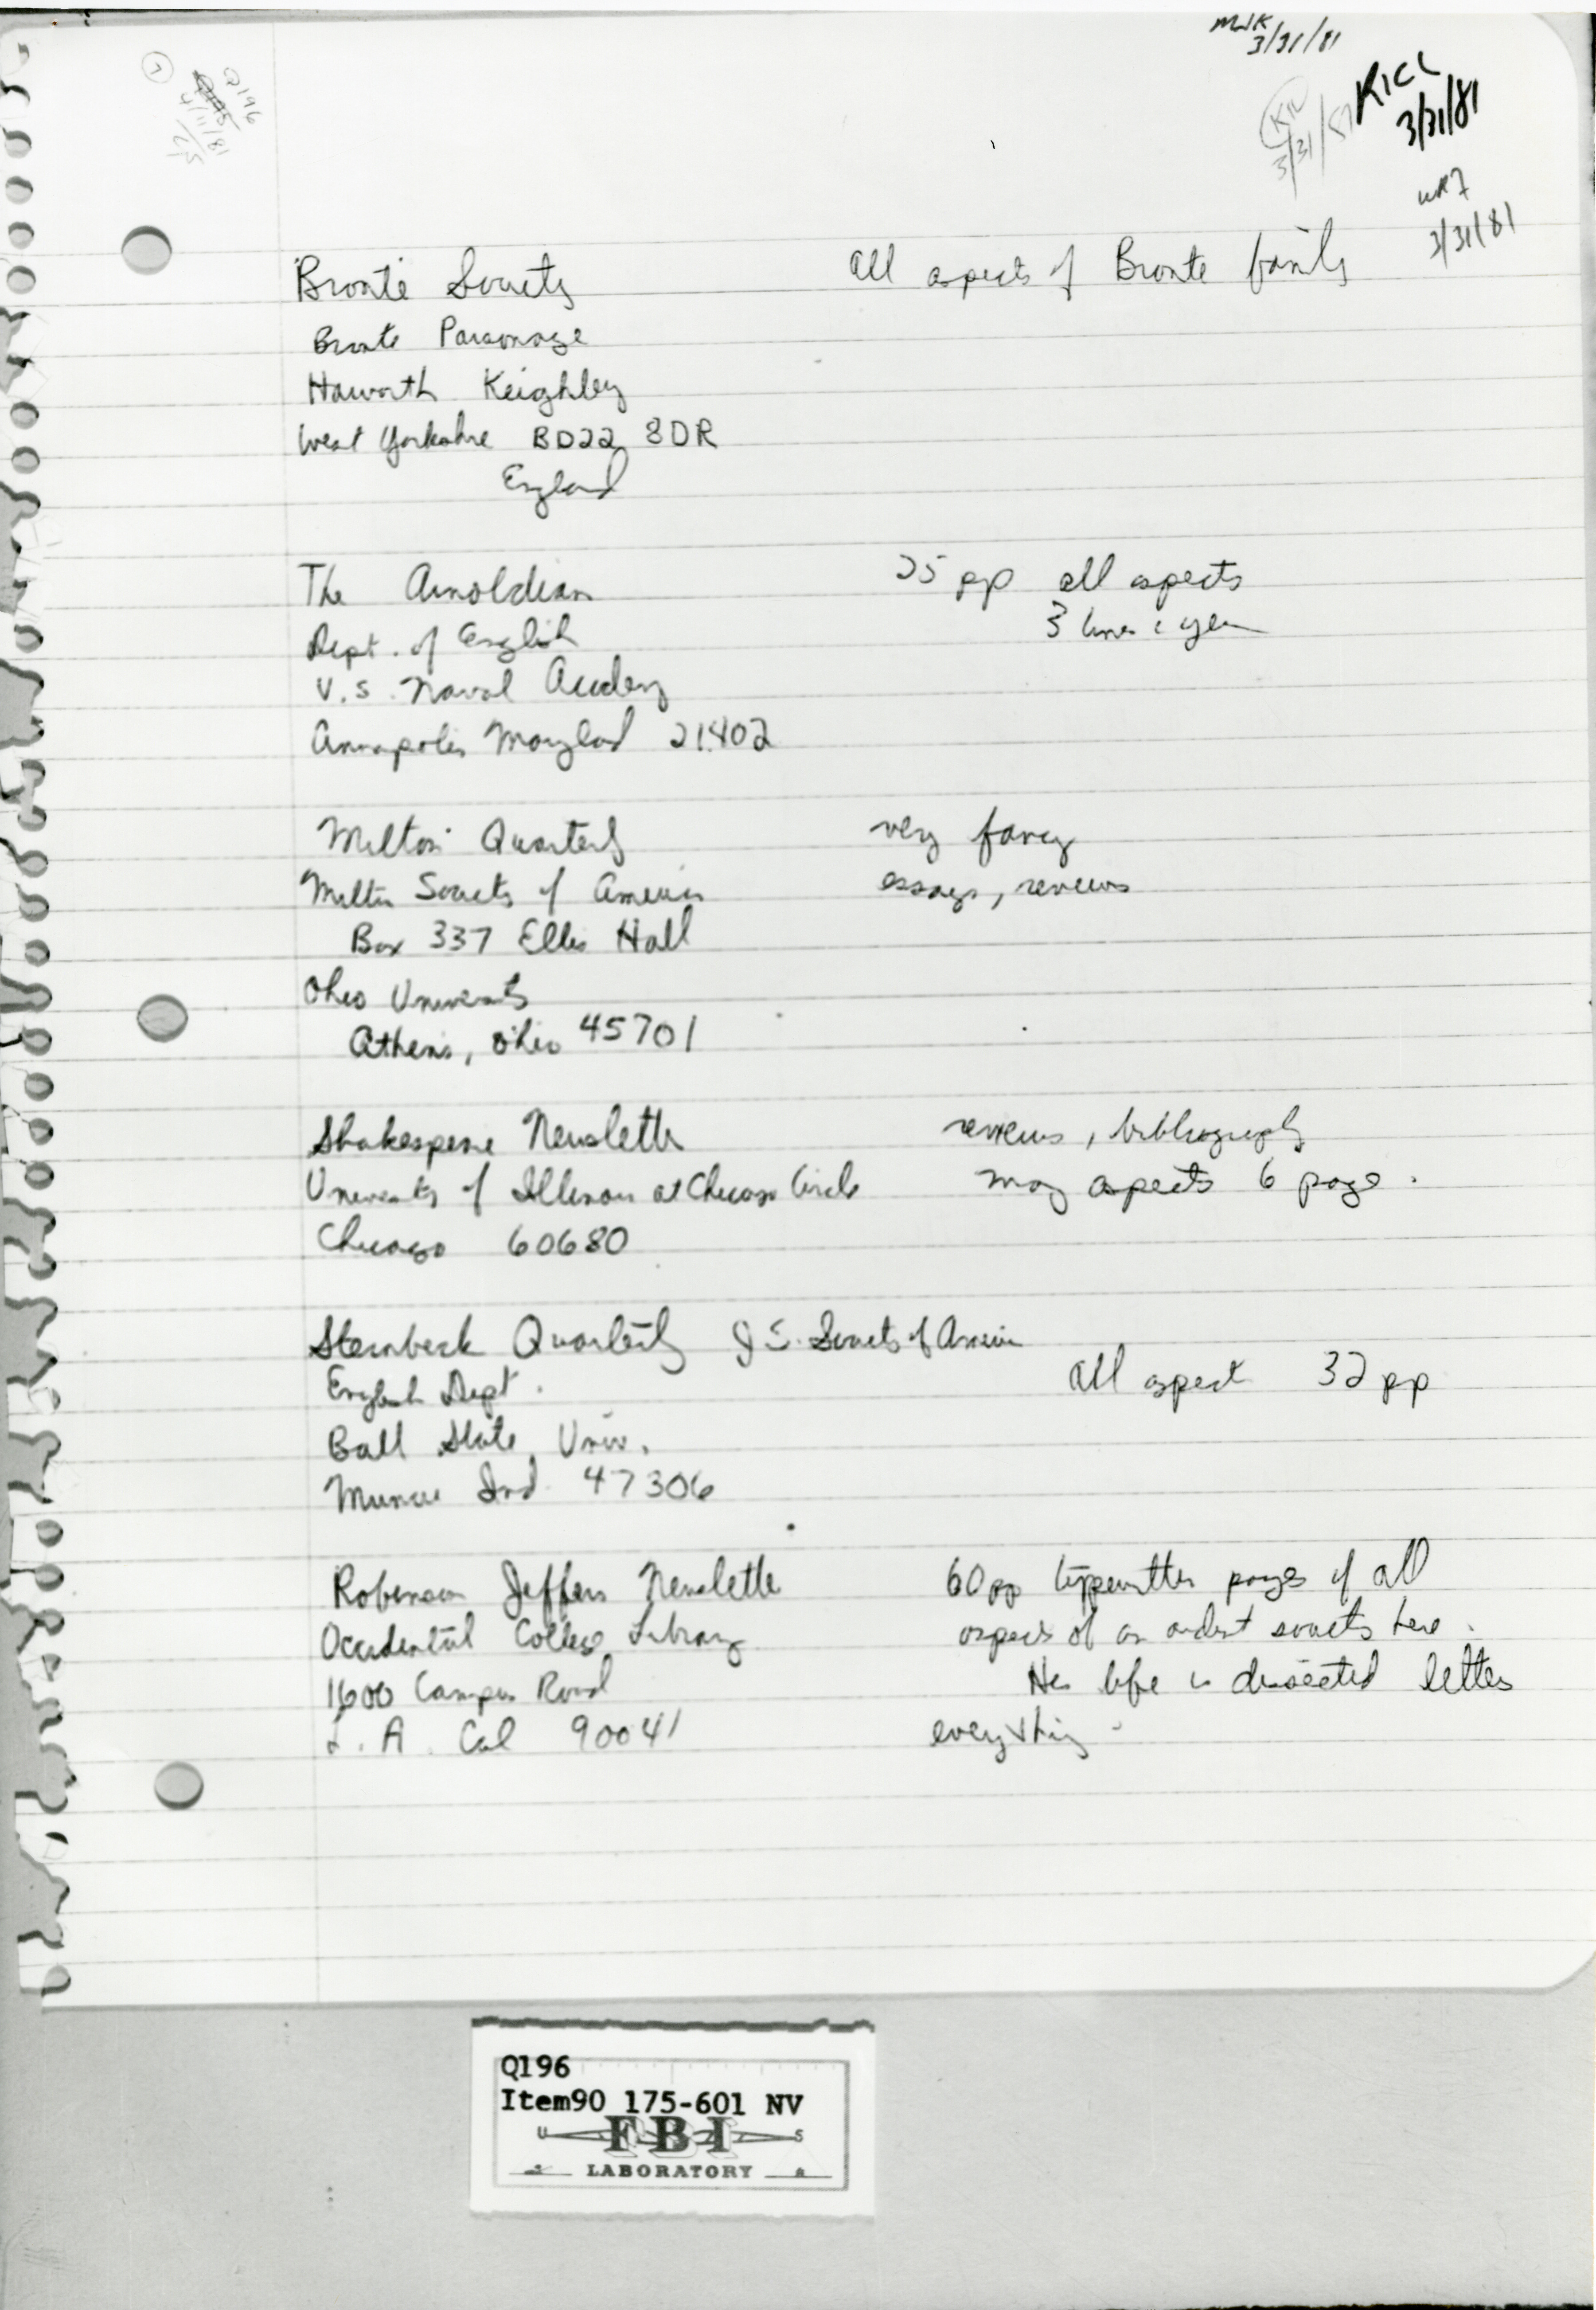 MJK
3/31/81
KICC
3/31/81
3/31/81
WR7
3/31/81
1
Q196
4/11/81
Bronte Society
All aspects of Bronte family
Bronte Parsonage
Haworth Keighley
West Yorkshire BD22 8DR
England
The Arnoldian
25 pp all aspects
Dept. of English
3 times a year
U.S. Naval Academy
Annapolis Maryland 21402
Milton Quarterly
very fancy
Milton Society of America
essays, reviews
Box 337 Ellis Hall
Ohio University
Athens, Ohio 45701
Shakespeare Newsletter
reviews, bibliography
University of Illinois at Chicago Circle
many aspects 6 page.
Chicago 60680
Steinbeck Quarterly J S. Society of America
English Dept.
all aspect 32 pp
Ball State Univ.
Muncie Ind. 47306
Robinson Jeffers Newsletter
60 pp typewritten pages of all
Occidental College Library
aspects of an ardent society here.
1600 Campus Road
His life is dissected letters
L.A. Cal 90041
everything.
Q196
Item90 175-601 NV
U FBI S
LABORATORY